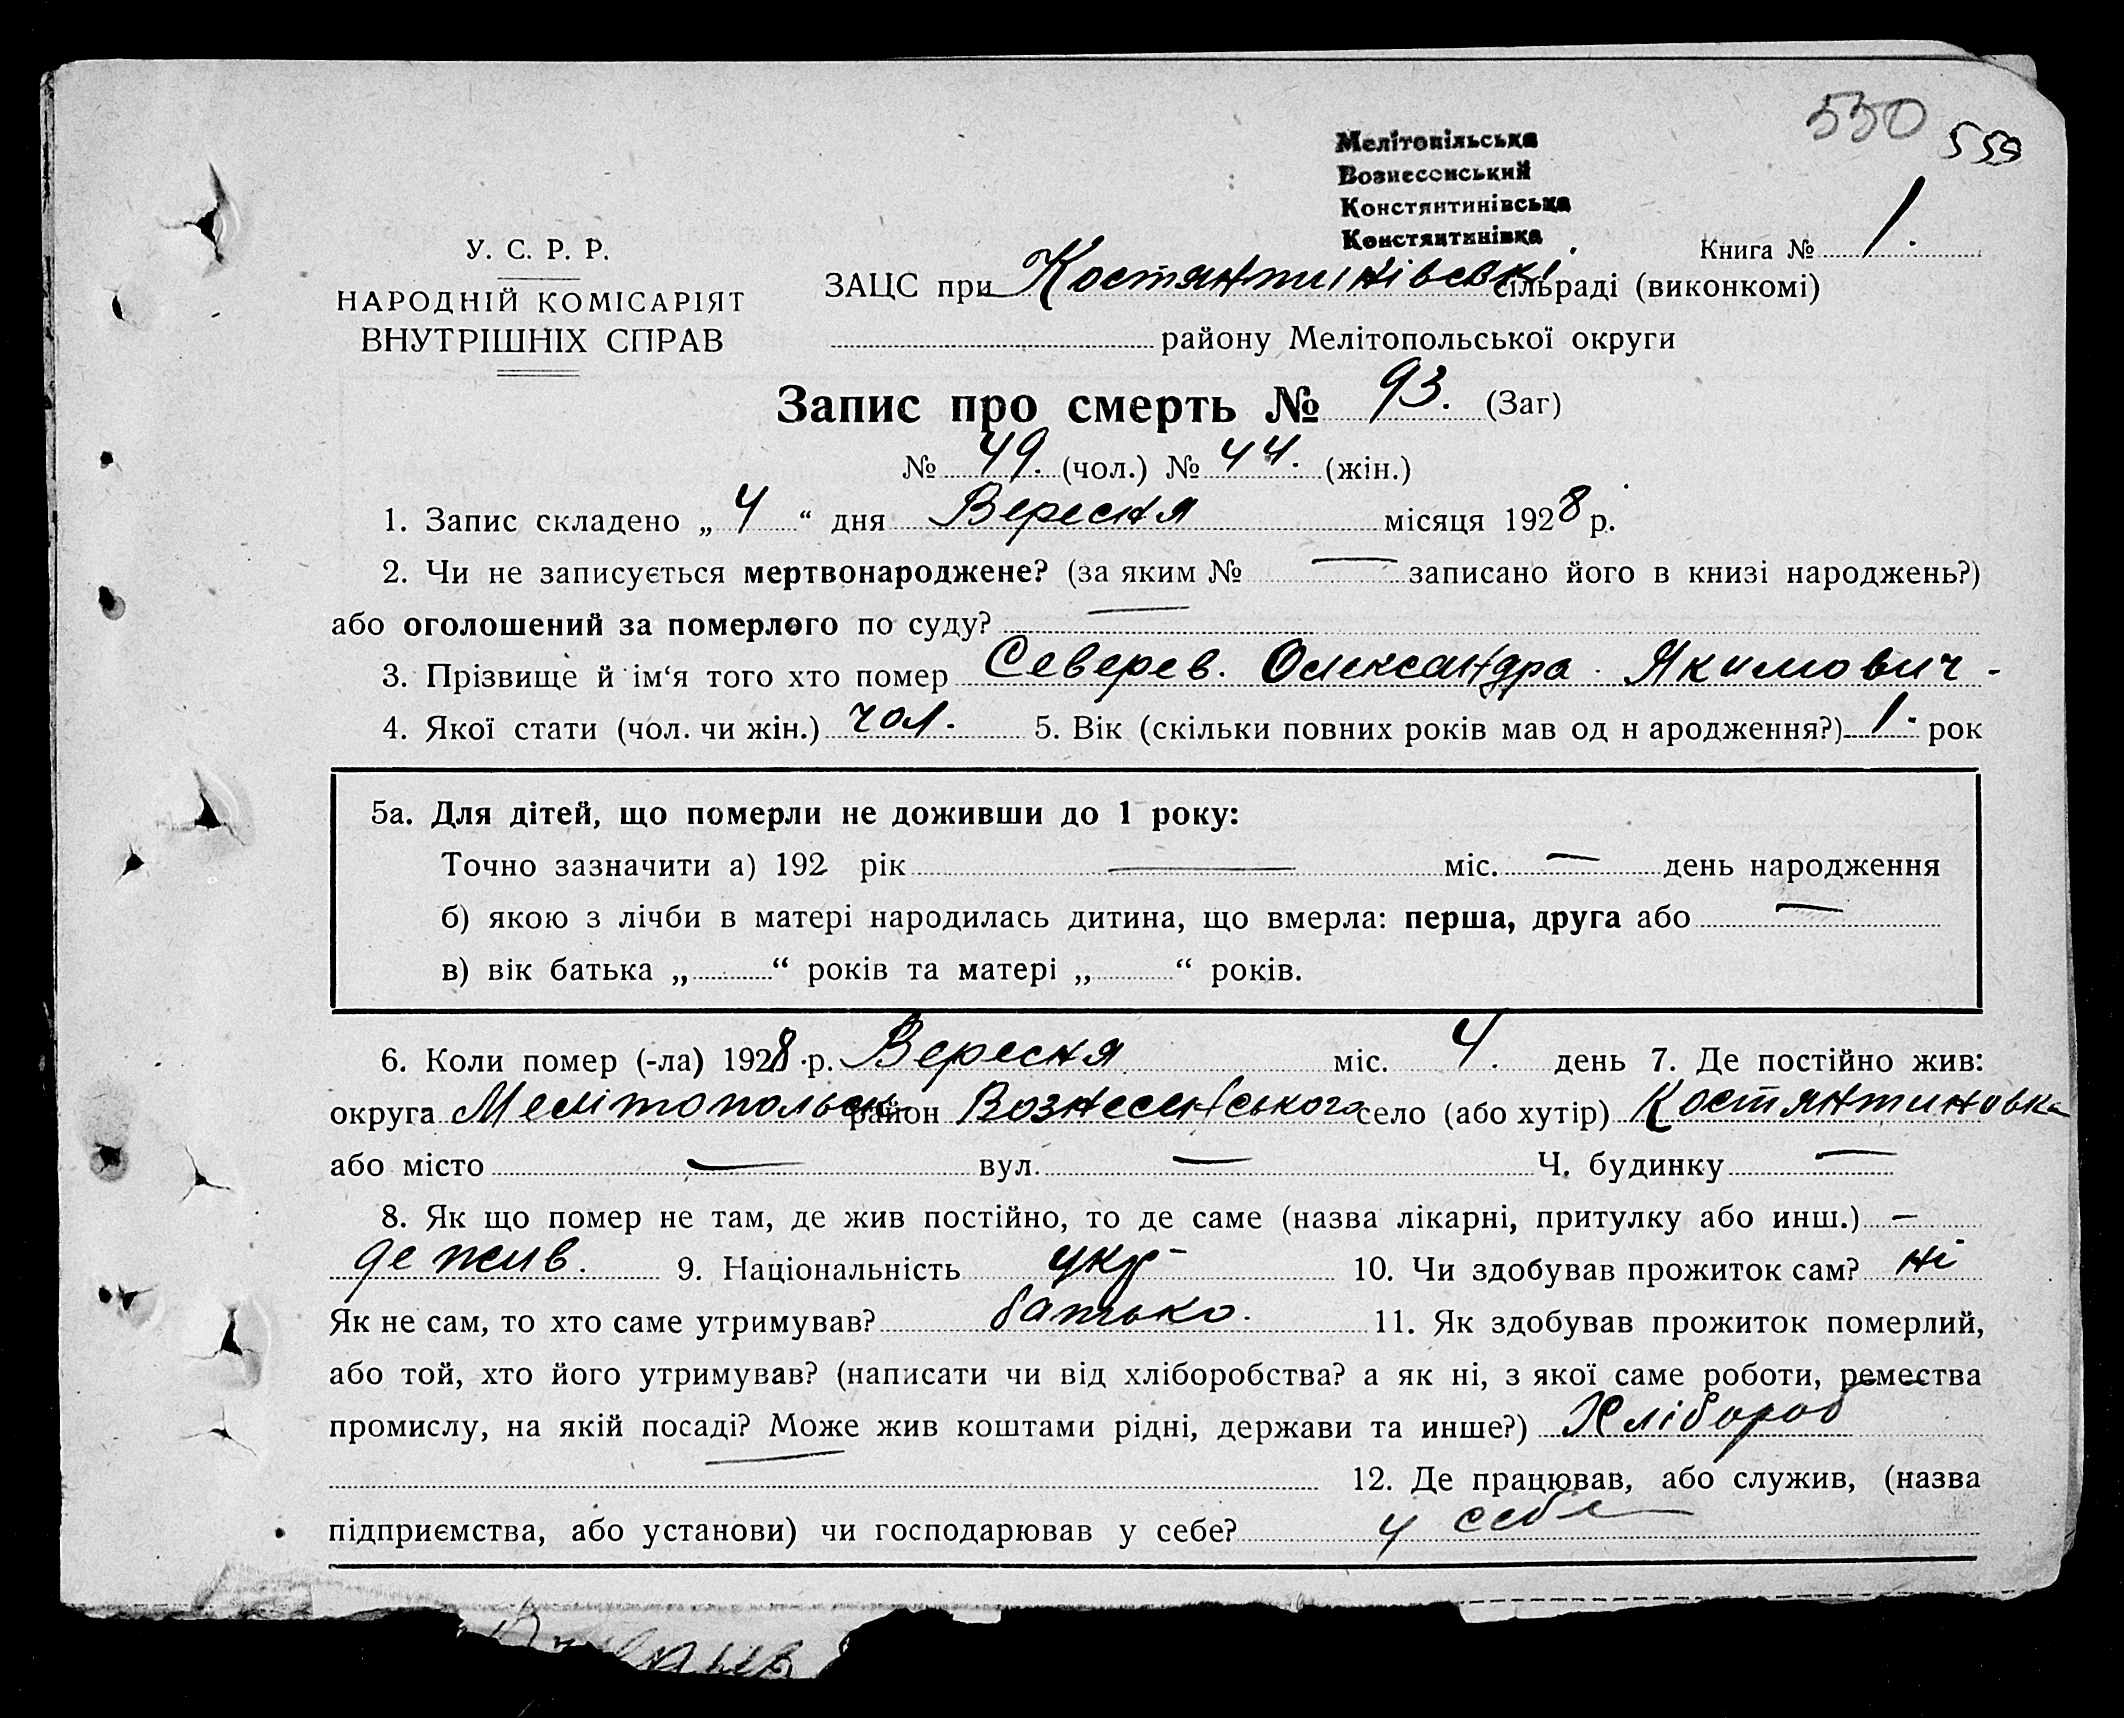 550 559
Мелітопільська
Вознесенський
Констянтинівська
Констянтинівка
У. С. Р. Р.
НАРОДНІЙ КОМІСАРІЯТ
ВНУТРІШНІХ СПРАВ
Книга № 1.
ЗАЦС при Костянтинівскі сільраді (виконкомі)
району Мелітопольської округи
Запис про смерть № 93. (Заг)
№ 49. (чол.) № 44. (жін.)
1. Запис складено „ 4 “ дня Вересня місяця 1928 р.
2. Чи не записується мертвонароджене? (за яким № — записано його в книзі народжень?)
або оголошений за померлого по суду? —
3. Прізвище й ім‘я того хто помер Северев. Олександра Якимович -
4. Якої стати (чол. чи жін.) чол. 5. Вік (скільки повних років мав од н ародження?) 1. рок
5а. Для дітей, що померли не доживши до 1 року:
Точно зазначити а) 192 рік — міс. — день народження
б) якою з лічби в матері народилась дитина, що вмерла: перша, друга або —
в) вік батька „ “ років та матері „ “ років.
6. Коли помер (-ла) 1928 р. Вересня міс. 4. день 7. Де постійно жив:
округа Мелітопольск район Вознесенського село (або хутір) Костянтиновка
або місто — вул. — Ч. будинку —
8. Як що помер не там, де жив постійно, то де саме (назва лікарні, притулку або инш.) —
де жив. 9. Національність укр 10. Чи здобував прожиток сам? ні
Як не сам, то хто саме утримував? батько. 11. Як здобував прожиток померлий,
або той, хто його утримував? (написати чи від хліборобства? а як ні, з якої саме роботи, ремества
промислу, на якій посаді? Може жив коштами рідні, держави та инше?) Хлібороб
— 12. Де працював, або служив, (назва
підприємства, або установи) чи господарював у себе? у себе